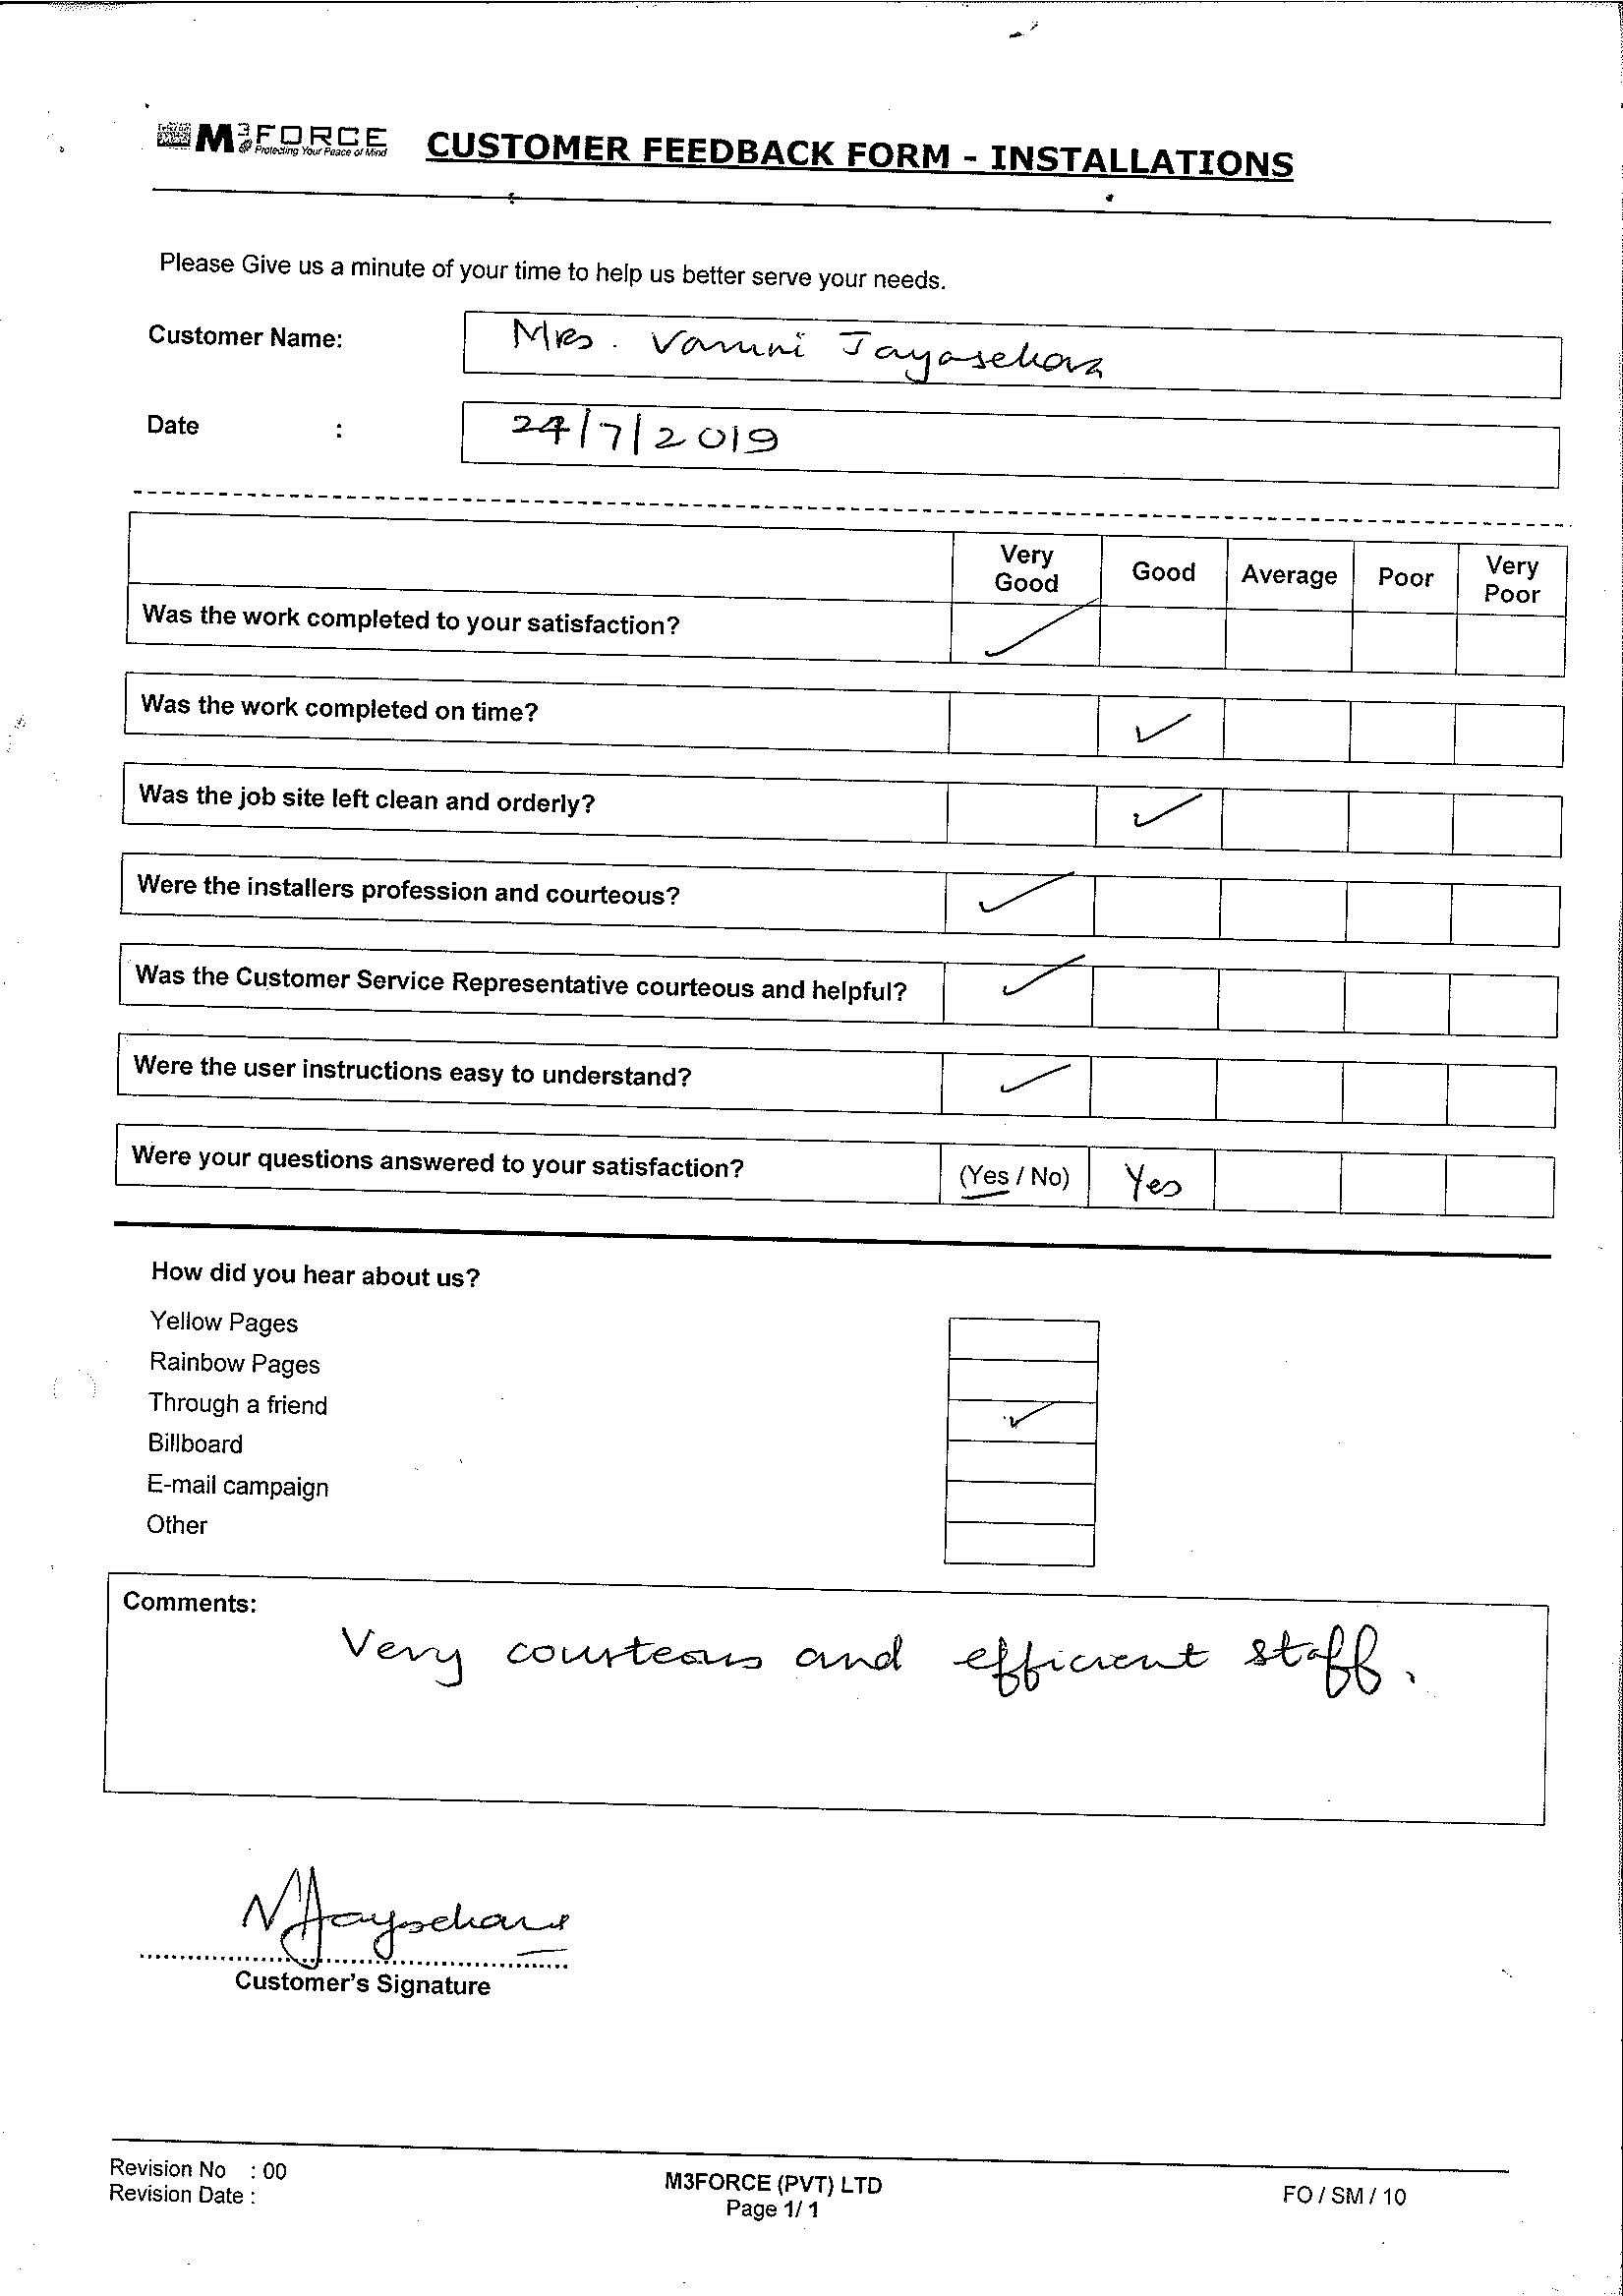 M3FORCE
Protecting Your Peace of Mind
CUSTOMER FEEDBACK FORM - INSTALLATIONS
Please Give us a minute of your time to help us better serve your needs.
Customer Name: Mrs. Jayasekara
Date : 24/7/2019
Very Good Good Average Poor Very Poor
Was the work completed to your satisfaction?
Was the work completed on time?
Was the job site left clean and orderly?
Were the installers profession and courteous?
Was the Customer Service Representative courteous and helpful?
Were the user instructions easy to understand?
Were your questions answered to your satisfaction? (Yes / No) Yes
How did you hear about us?
Yellow Pages
Rainbow Pages
Through a friend
Billboard
E-mail campaign
Other
Comments:
Very courteous and efficient staff.
Customer's Signature
Revision No : 00
Revision Date :
M3FORCE (PVT) LTD
Page 1/ 1
FO / SM / 10